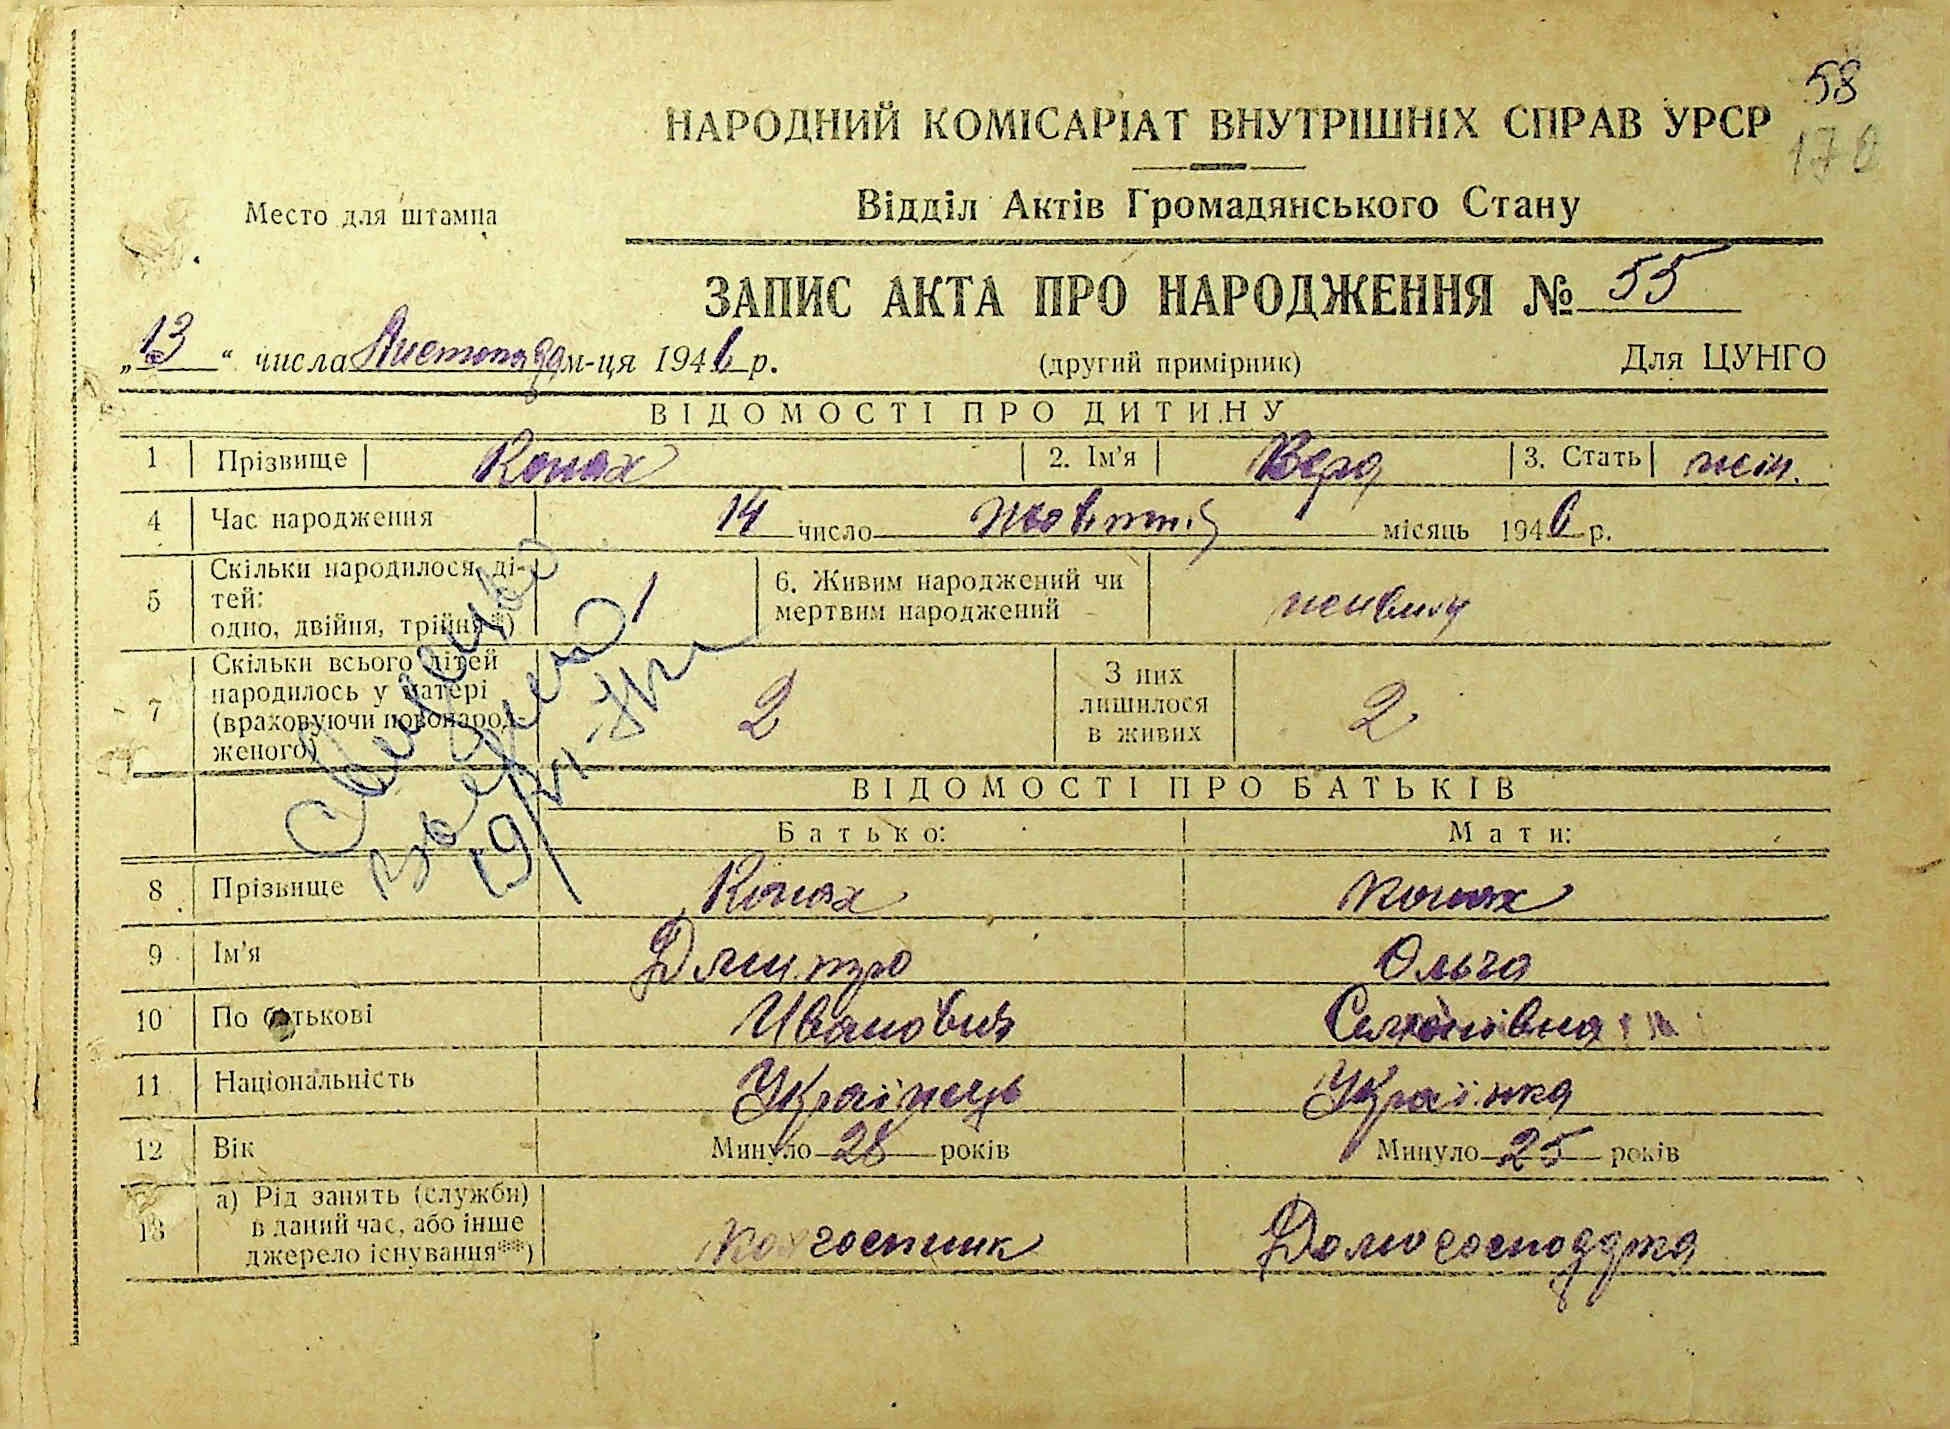 58
170
НАРОДНИЙ КОМІСАРІАТ ВНУТРІШНІХ СПРАВ УРСР
Место для штампа
Відділ Актів Громадянського Стану
ЗАПИС АКТА ПРО НАРОДЖЕННЯ № 55
„13“ числа Листопада м-ця 1946 р. (другий примірник) Для ЦУНГО
ВІДОМОСТІ ПРО ДИТИНУ
1 Прізвище Конах 2. Ім'я Вера 3. Стать жін.
4 Час народження 14 число Жовтня місяць 1946 р.
5 Скільки народилося ді-
тей:
одно, двійня, трійня*) 1 6. Живим народжений чи
мертвим народжений
7 Скільки всього дітей
народилось у матері
(враховуючи новонарод-
женого) 2 З них
лишилося
в живих 2
Свидетельство
ВІДОМОСТІ ПРО БАТЬКІВ
Батько: Мати:
8 Прізвище Конах Конах
9 Ім'я Дмитро Ольга
10 По батькові Иванович Семёнівна
11 Національність Українець Українка
12 Вік Минуло 28 років Минуло 25 років
13 а) Рід занять (служби)
в даний час, або інше
джерело існування**) колгоспник Домогосподарка